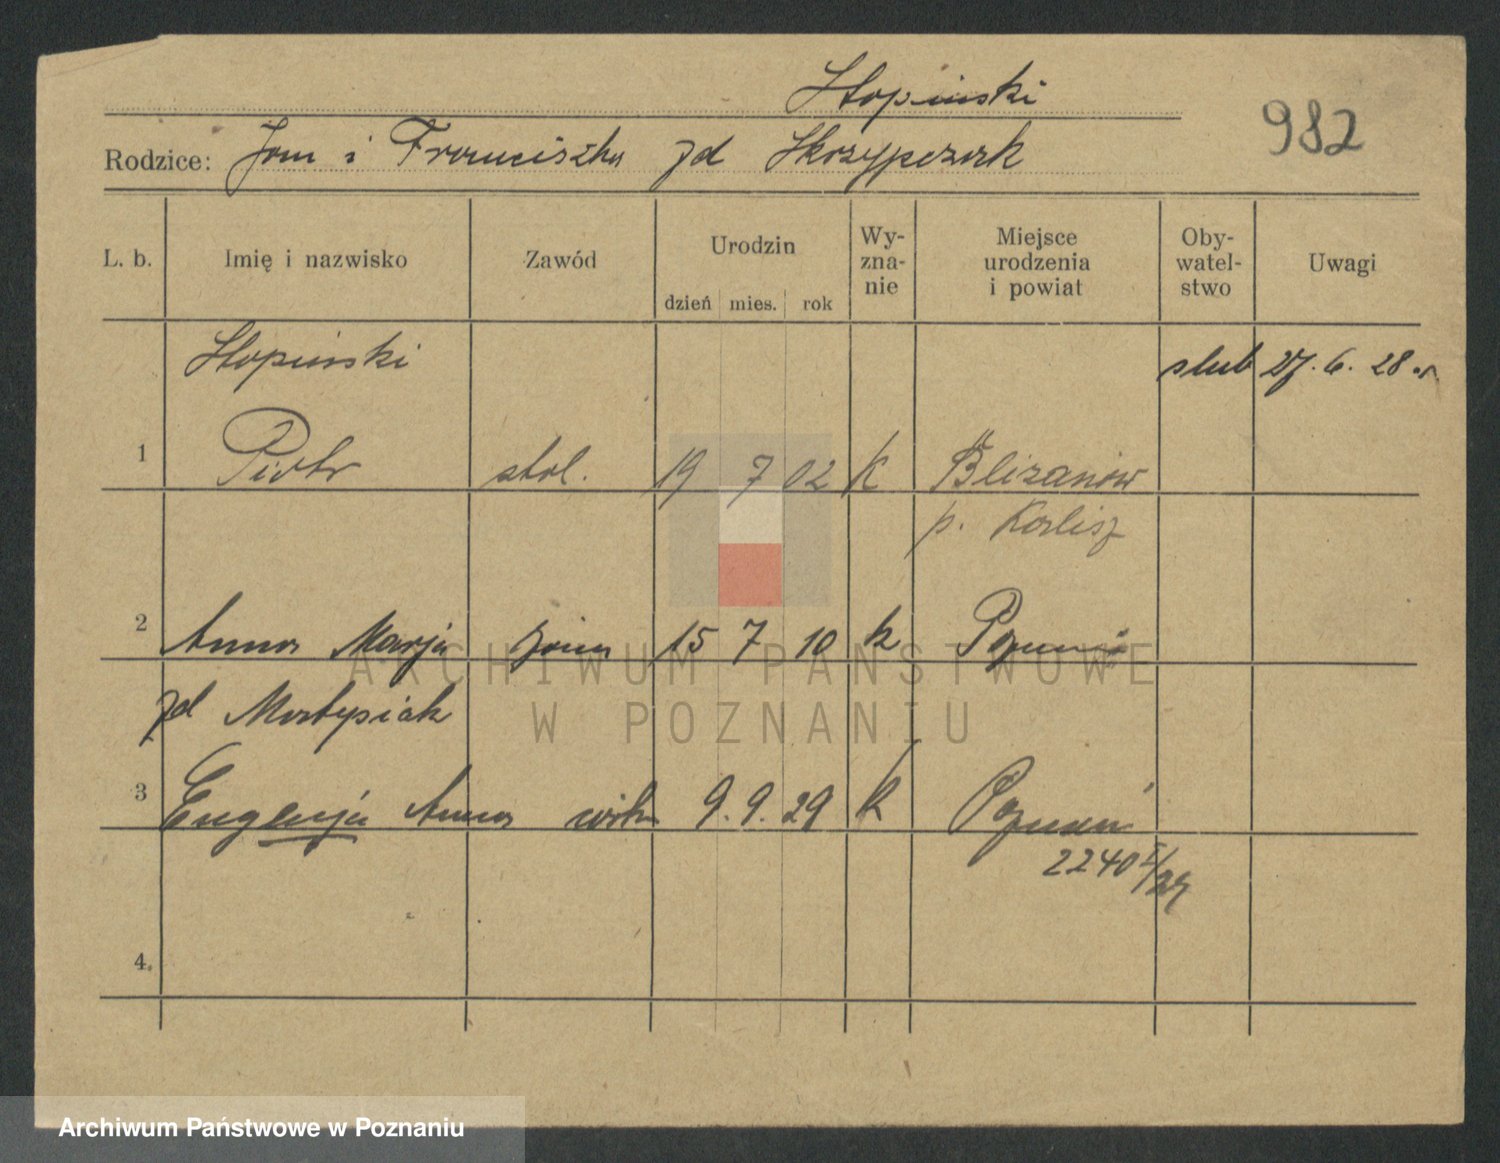 Stopinski
982
Rodzice: Jan i Franciszka zd Skrzypczak
L. b. Imię i nazwisko Zawód Urodzin Wy-zna-nie Miejsce urodzenia i powiat Oby-watel-stwo Uwagi
dzień mies. rok
Stopinski slub 27. 6. 28 r
1 Piotr stol. 19 7 02 K Blizanów
p. Kalisz
2 Anna Marja żona 15 7 10 k Poznań
ARCHIWUM PAŃSTWOWE
zd Matysiak
W POZNANIU
3 Eugenja Anna córka 9. 9. 29 k Poznań
2240 I/29
4.
Archiwum Państwowe w Poznaniu